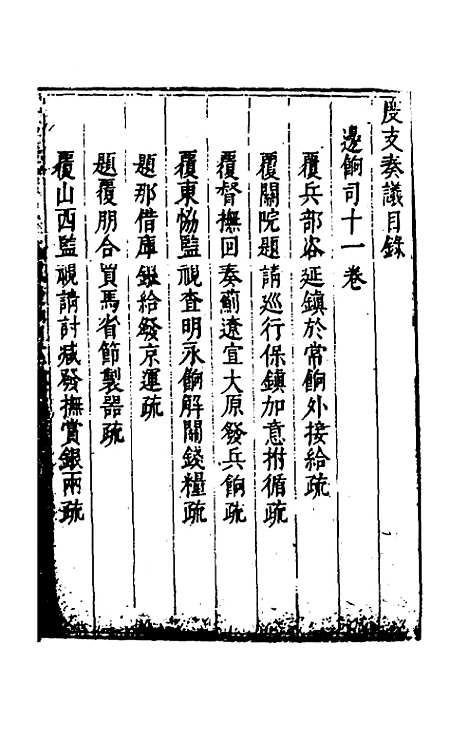 度支奏議目錄
邊餉司十一卷
覆兵部咨延鎮於常餉外接給疏
覆關院題請巡行保鎮加意拊循疏
覆督撫回奏薊遠宜大原發兵餉疏
覆東協監視查明永餉解關錢糧疏
題那借庫銀給發京運疏
題覆朋合買馬省節製器疏
覆山西監視請討減發撫賞銀兩疏